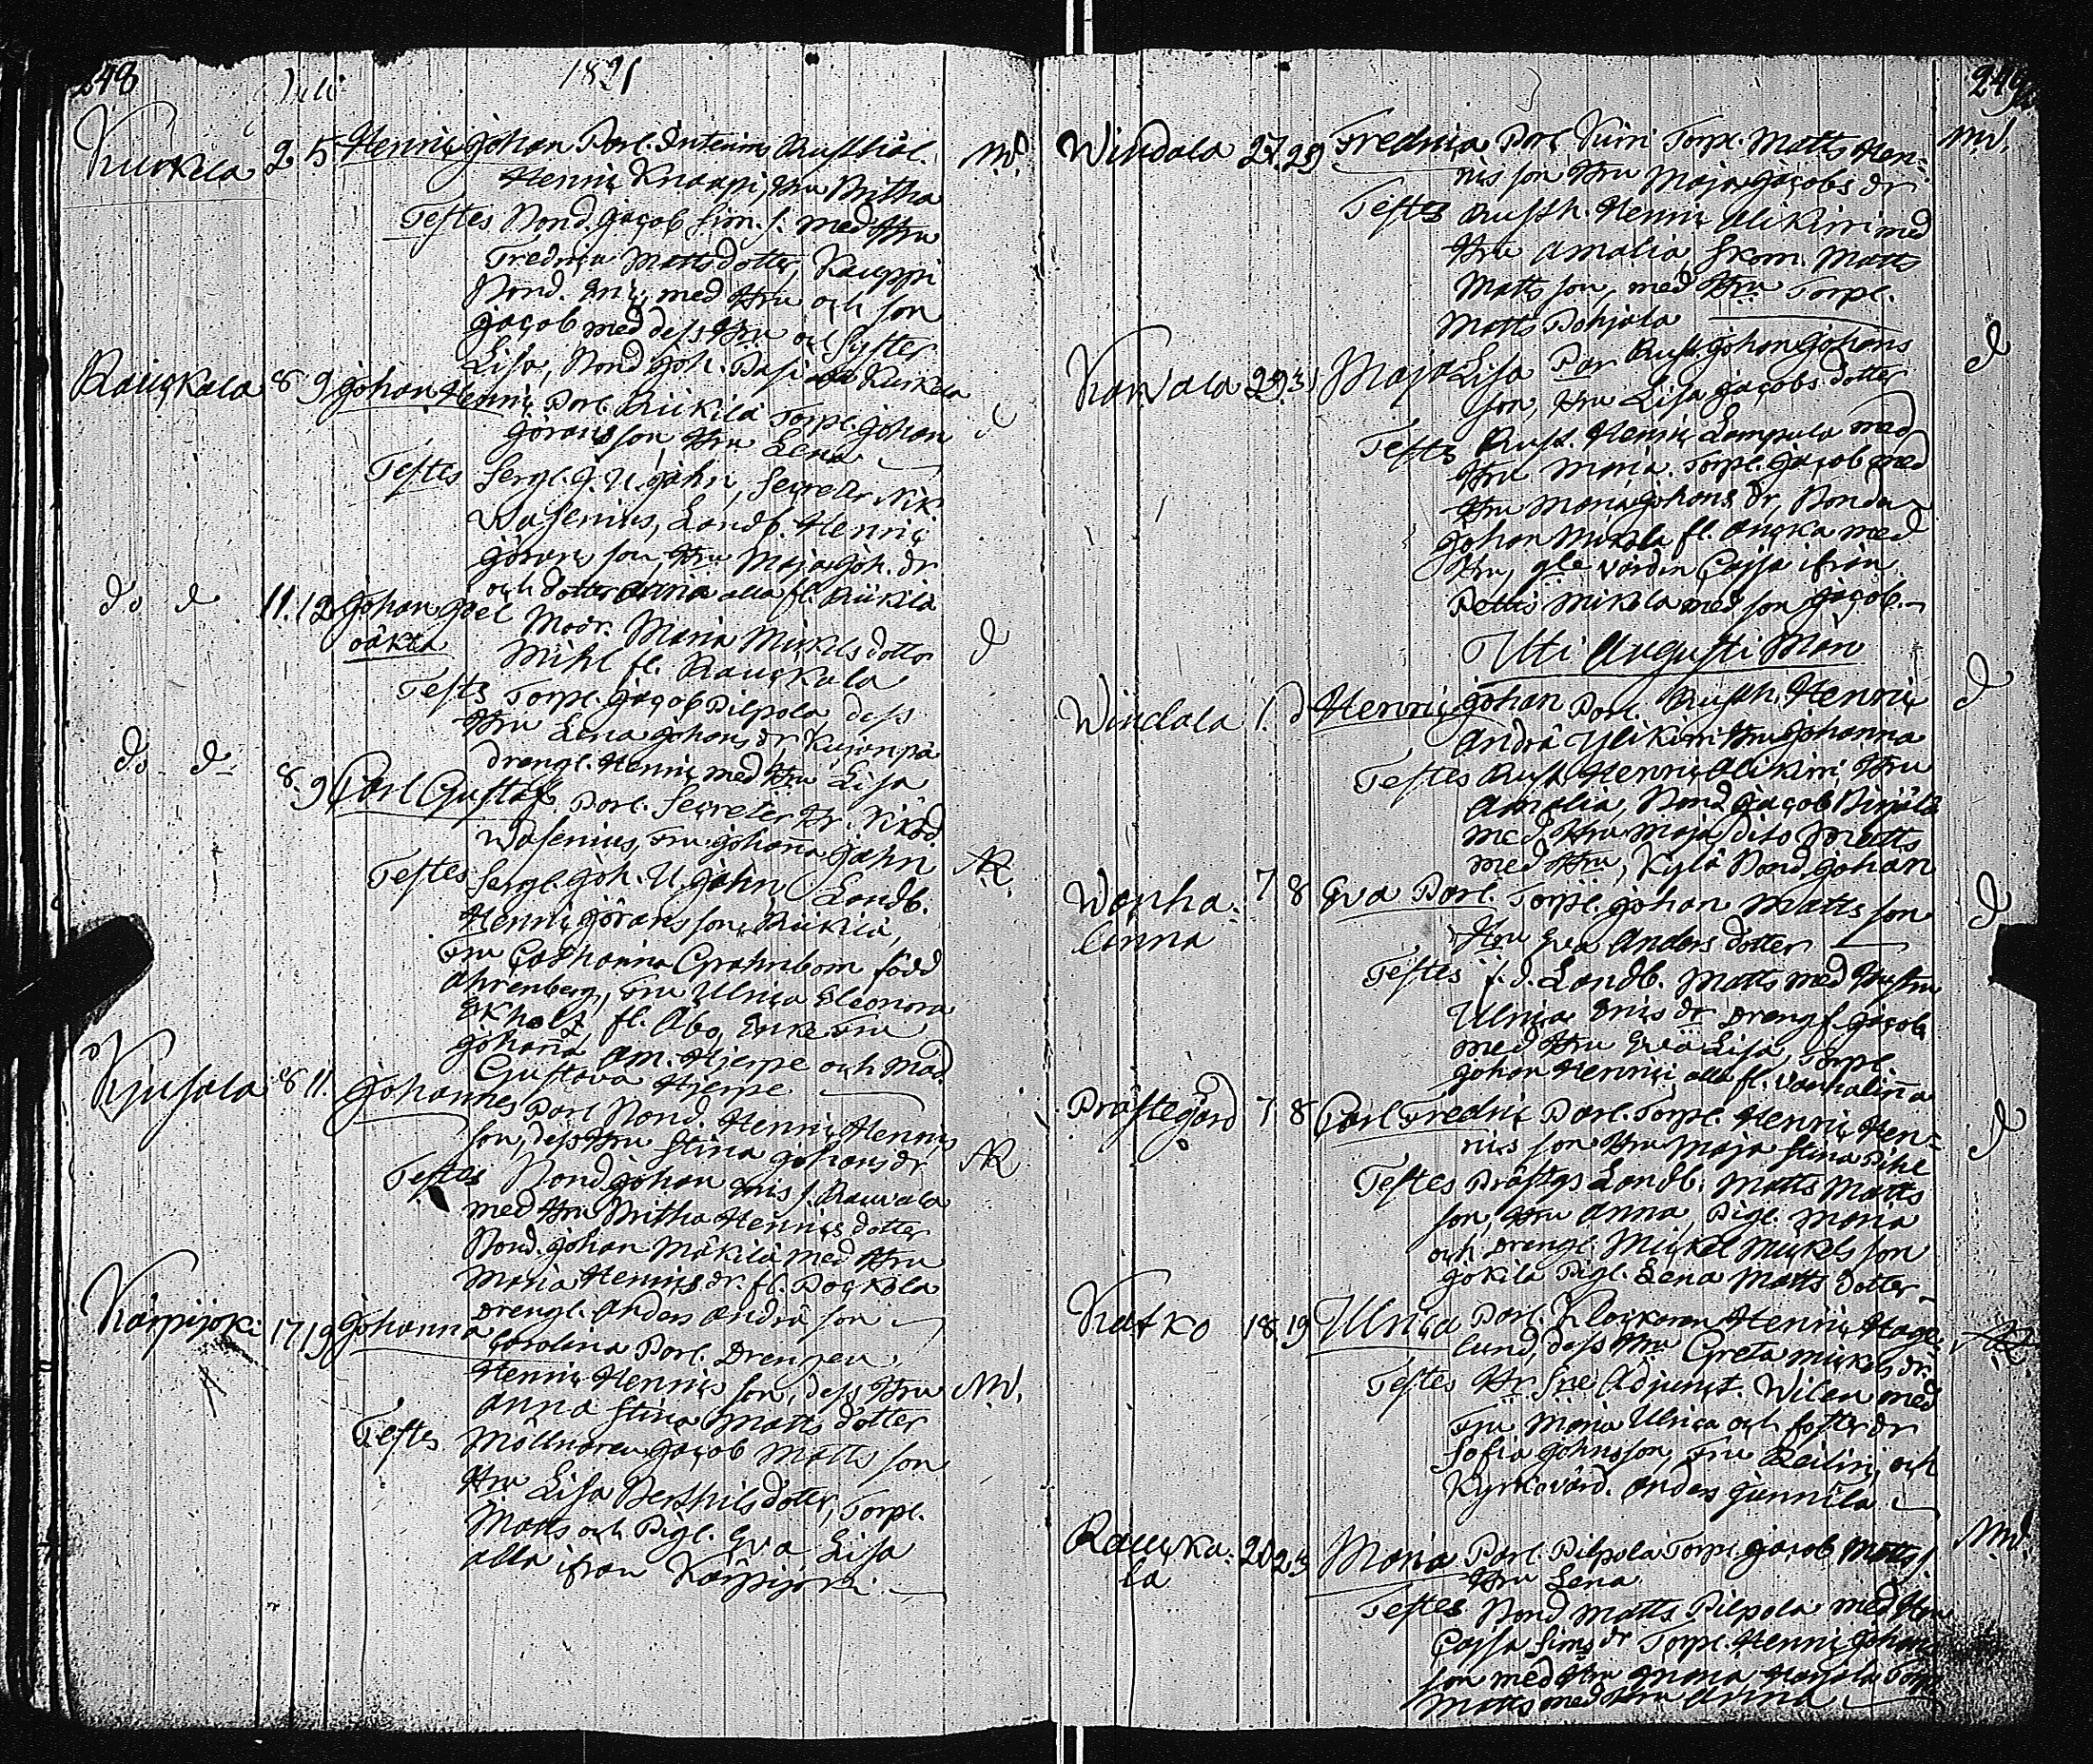 248
Juli 1821
Kurkela 2 5 Henric Johan Parl. Interims Rusthål.
Henric Knaapi, Hru Britha
Testes Bond. Jacob Sim. s. med Hru
Fredrica Mattsdotter, Kauppi
Bond. Eric, med Hru och son
Jacob med dess Hru och Syster
Lisa, Bond Joh. Pasi Kurkela
Rauckala 8 9 Johan Henric Parl. Riikilä Torpl. Johan
Görans son, Hru Lena
Testes Sergt. J. U. Jahn, Secreter Nik.
Wasenius, Landb. Henric
Görans son, Hru Maja Joh. dr
och dotter Anna alla fl. Riikilä
do d 11. 12 Johan Joel Modr. Maria Mickels dotter
oäkta
Mihl fl. Rauckala
Testes Torpl. Jacob Pilpola, dess
Hru Lena Johans dr, Kujanpä
drengl. Henric med Hru Lisa
do d 8. 9 Carl Gustaf Parl. Secreter Hr. Nikod.
Wasenius, Fru Johana Jahn
Testes Sergt. Joh. U. Jahn Landb.
Henric Görans son, Riikilä,
Fru Catharina Grahnbom född
Ahrenberg, Fru Ulrica Eleonora
Ekholtz, fl. Åbo, Enke Fru
Johanna Am. Hjerpe och Mad.
Gustava Hjerpe
8 11. Johannes Parl Bond. Henric Henrics
son, dess Hru Stina Johans dr
Testes Bond Johan Eriс s. Rauvala
med Hru Britha Henrics dotter
Bond. Johan Mäkilä med Hru
Maria Henrics dr. fl. Pockola
Drengl. Anders Andrä son
Karpijoki 17 19 Johanna Carolina Parl. Drengen
Henric Henrics son, dess Hru
Anna Stina Matts dotter
Testes Möllnaren Jacob Matts son
Hru Lisa Berthils dotter, Torpl.
Matts och Pigl. Eva Lisa
alla ifrån Karpijoki
249
Windala 27. 29 Fredrica Parl Kiiri Torpl. Matts Hen-
rics son Hru Maja Jacobs dr
Testes Rusth. Henric Alikirri med
Hru Amalia, Skom. Matts
Matts son, med Hru Torpl.
Matts Pohjala
29. 31 Maja Lisa Par Rust. Johan Johans
son, Hru Lisa Jacobs dotter
Testes Rust. Henric Lampula med
Hru Maria. Torpl. Jacob med
Hru Maria Johans dr, Bonden
Johan Mikola fl. Aucka med
Hru, gle värdin Cajsa ifrån
Mikola med son Jacob.
Uti Augusti Mån
Windala 1. d Henric Johan Parl. Rusth. Henric
Andrä Ylikirri Hru Johanna
Testes Rust Henric Alikirri Hru
Amalia, Bond Jacob
med Hru Maja dito Matts
med Hru, Kylä Bond Johan
Wanha- 7 8 Eva Parl. Torpl. Johan Matts son
linna
Hru Eva Anders dotter
Testes f. d. Landb. Matts med Hustru
Ulrica Erics dr Drengl. Jacob
med Hru Eva Lisa, Torpl.
Johan Henric alla fl. Vanhalinna
Prästegård 7 8 Carl Fredric Parl. Torpl. Henric Hen-
rics son Hru Maja Stina Pihl
Testes Prästgs Landb. Matts Matts
son, Hru Anna, Pigl. Maria
och Drengl. Mickel Mickels son
Jokila Pigl. Lena Matts dotter
18 19 Ulrica Parl. Klockaren Henric Hage-
lund, dess Hru Greta Mickels dr.
Testes Hr Sne Adjunct. Wilen med
Fru Maria Ulrica och foster dr
Sofia Johnsson, Fru Reilin, och
Kyrkovärd. Anders Junnila
Rauka- 20 23 Maria Parl. Pilpola Torpl. Jacob Matts s.
la
Hru Lena
Testes Bond Matts Pilpola med Hru
Cajsa Sims dr Torpl. Henric Johans
son med Hru Maria
Matts med Hru Anna